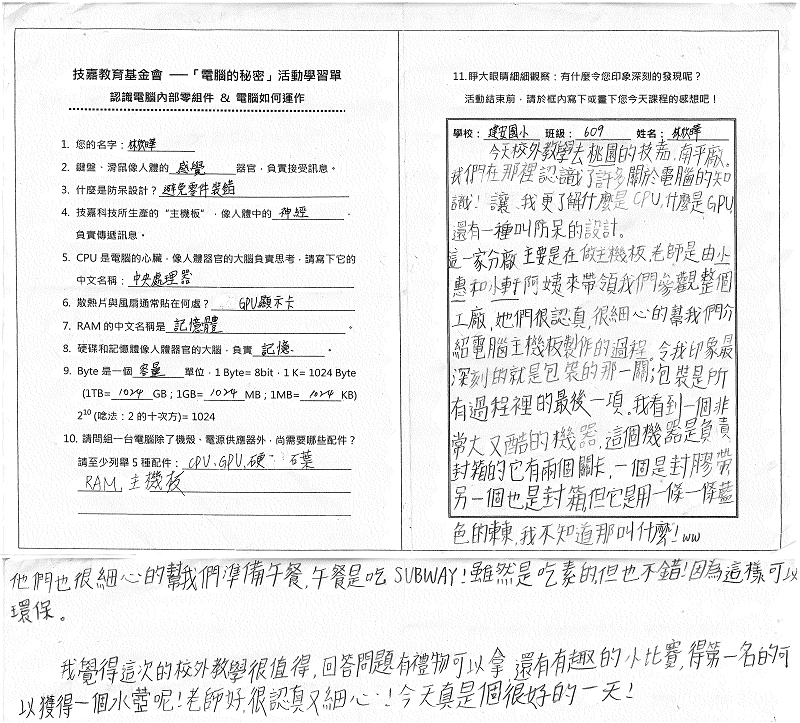 技嘉教育基金會 ──「電腦的秘密」活動學習單
認識電腦內部零組件 & 電腦如何運作
1. 您的名字：林妝曄
2. 鍵盤、滑鼠像人體的 感覺 器官，負責接受訊息。
3. 什麼是防呆設計？避免零件裝錯
4. 技嘉科技所生產的“主機板”，像人體中的 神經 ，
負責傳遞訊息。
5. CPU 是電腦的心臟，像人體器官的大腦負責思考，請寫出它的
中文名稱：中央處理器
6. 散熱片與風扇通常貼在何處？ GPU顯示卡
7. RAM 的中文名稱是 記憶體 。
8. 硬碟和記憶體像人體器官的大腦，負責 記憶 。
9. Byte 是一個 容量 單位，1 Byte= 8bit，1 K= 1024 Byte
(1TB= 1024 GB；1GB= 1024 MB；1MB= 1024 KB)
2¹⁰ (唸法：2 的十次方)= 1024
10. 請問組一台電腦除了機殼、電源供應器外，尚需要哪些配件？
請至少列舉 5 種配件： CPU、GPU、硬碟
RAM, 主機板
11. 睜大眼睛細細觀察：有什麼令您印象深刻的發現呢？
活動結束前，請於框內寫下或畫下您今天課程的感想吧！
學校：建安國小 班級：609 姓名：林妝曄
今天校外教學去桃園的技嘉.南平廠。
我們在那裡認識了許多關於電腦的知
識！讓我更了解什麼是CPU,什麼是GPU,
還有一種叫防呆的設計。
這一家分廠主要是在做主機板,老師是由小
惠和小軒阿姨來帶領我們參觀整個
工廠,她們很認真,很細心的幫我們介
紹電腦主機板製作的過程。令我印象最
深刻的就是包裝的那一關,包裝是所
有過程裡的最後一項。我看到一個非
常大又酷的機器,這個機器是負責
封箱的它有兩個關卡,一個是封膠帶
另一個也是封箱,但它是用一條一條藍
色的東東,我不知道那叫什麼！ww
他們也很細心的幫我們準備午餐,午餐是吃SUBWAY！雖然是吃素的,但也不錯！因為這樣可以
環保。
我覺得這次的校外教學很值得,回答問題有禮物可以拿,還有有趣的小比賽,得第一名的可
以獲得一個水壺呢！老師好,很認真又細心！今天真是個很好的一天！